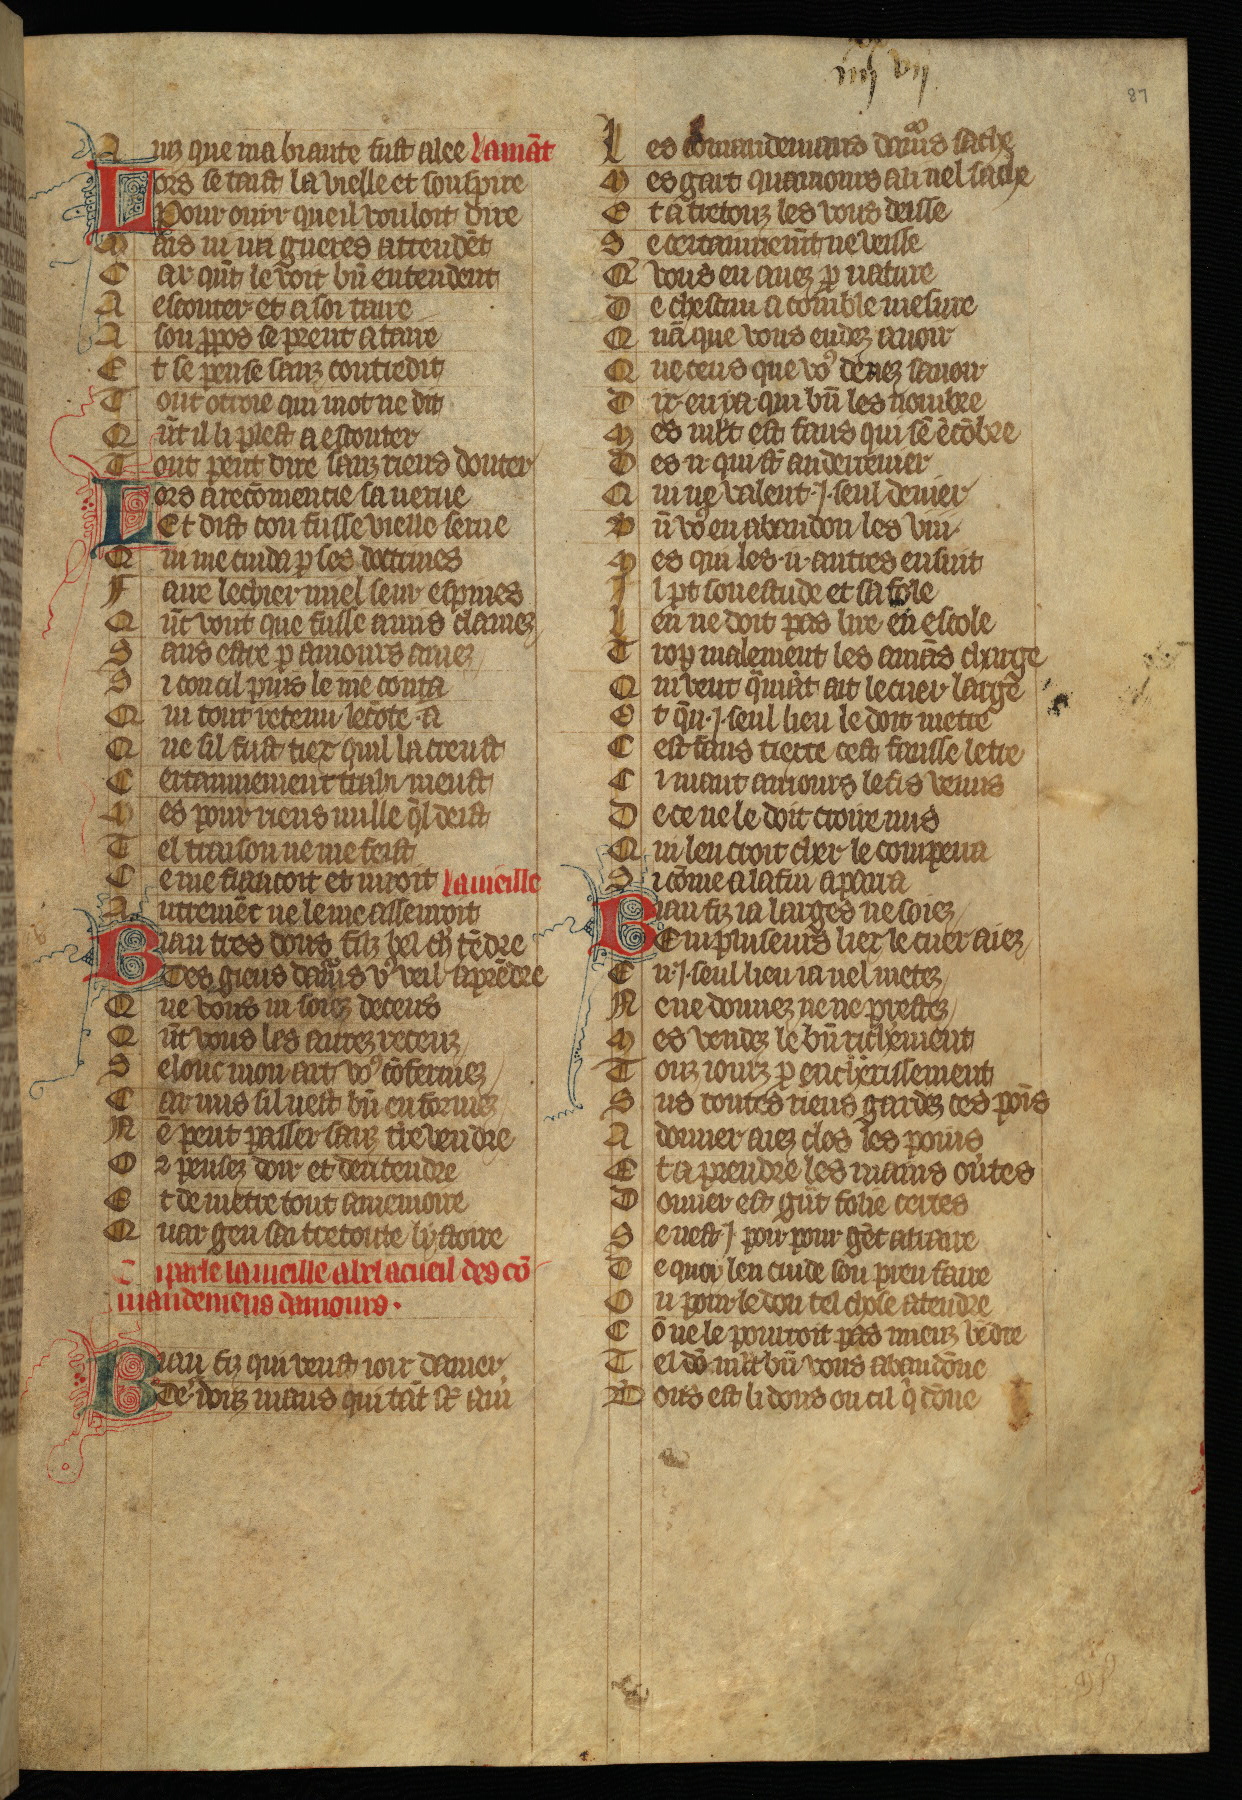 iiij vij
87
Ainz que ma biaute fust alee Lamãt
Lors se taist la vielle et souspire
Pour ouir que il vouloit dire
Mais ni va gueres attendẽt
Car qũt le voit bñ entendent
A escouter et a soi taire
A son ppos se prent a taire
Et se pense sanz contredit
Tout otroie qui mot ne dit
Qũt il li plest a escouter
Tout peut dire sanz riens douter
Lors a recõmencie sa verue
Et dist con fausse vielle serue
Qui me cuida p ses doctrines
Faire lechier miel seur espines
Qũt vout que fusse amis clamez
Sans estre p amours amez
Si con cil puis le me conta
Qui tout retenu le cõte a
Que sil fust tiex quil la creust
Certainnement trahi meust
Mes pour riens nulle ql deist
Tel traison ne me feist
Ce me fiancoit et iuroit La vieille
Autremẽt ne le me asseuroit
Biau tres dous filz bel ch' tẽdre
Des gieus damꝰs vꝰ veil aprẽdre
Que vous ni soiez deceus
Qũt vous les aurez receuz
Selonc mon art voꝰ cõfermez
Car nus sil nest bñ enformez
Ne peut passer sanz tire vendre
Or pensez doir et dentendre
Et de metre tout a memoire
Quar gen sai trestoute lystoire
Ci parle la vieille a bel acueil des cõ
mandemens damours.
Biau filz qui veust ioir damer
De' douz maus qui tãt st' am'
Les cõmandemans damꝰs sache
Mes gart quamours a li nel sache
Et ci tretouz les vous deisse
Se certainnemẽt ne veisse
Q' vous en auez p nature
De chescun a comble mesure
Quã que vous en dez auoir
Que ceus que voꝰ deuez sauoir
Dix en ya qui bñ les nombre
Mes mlt est faus qui sẽ ẽcõbre
Des .ii. qui st' au derrenier
Qui ne valent .j. seul denier
Bñ voꝰ en abandon les viii
Mes qui les .ii. autres ensuit
Il pt son estude et sa fole
Len ne doit pas lire en escole
Trop malement les amãs charge
Qui veut qũ amãt ait le cuer large
Et qũ .j. seul lieu le doit metre
Cest faus tiexte cest fausse letre
Ci ment amours le fis venus
De ce ne le doit croire nus
Qui len croit cher le compera
Si cõme a la fin aparra
Biau filz ia larges ne soiez
En pluseurs liex le cuer aiez
En .j. seul lieu ia nel metez
Ne ne donnez ne ne prestez
Mes vendez le bñ richement
Touz iourz p encherissement
Sus toutes riens gardez ces poĩs
A donner aiez clos les poins
Et a prendre les mains ouũtes
Donner est gũt folie certes
Se nest .j. poi pour gẽt atraire
De quoi len cuide son preu faire
Ou pour le don tel chose atendre
Cõ ne le pourroit pas miex vẽdre
Tel dõ mlt bñ vous abandõne
Bons est li dons ou cil q' dõne